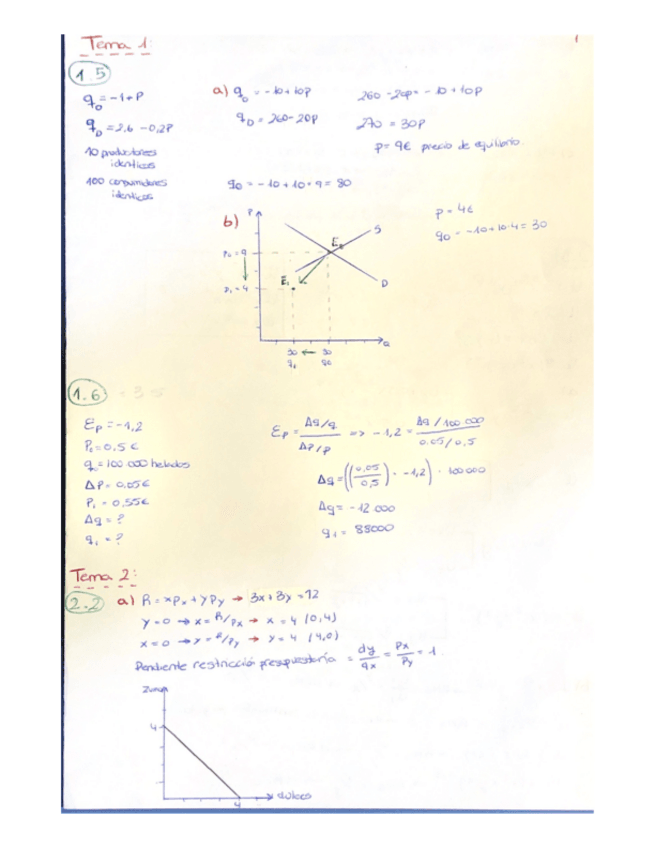 Tema 1:
1
1.5
q₀ = -1+P
q_D = 2,6 - 0,2P
10 productores
identicos
100 consumidores
identicos
a) q₀ = -10+10p
q_D = 260-20p
260-20p = -10+10p
270 = 30p
p = 9€ precio de equilibrio
q₀ = -10+10·9 = 80
p = 4€
q₀ = -10+10·4 = 30
b)
P
S
E₀
P₀=9
E₁
P₁=4
D
Q
30 ← 30
q₁ q₀
1.6
Ep = -1,2
P₀ = 0,5€
q₀ = 100 000 helados
ΔP = 0,05€
P₁ = 0,55€
Δq = ?
q₁ = ?
Ep = Δq/q / ΔP/P => -1,2 = Δq/100.000 / 0.05/0,5
Δq = ((0,05/0,5) · -1,2) · 100000
Δq = -12 000
q₁ = 88000
Tema 2:
2.2
a) R = xPx + yPy → 3x+3y = 12
y=0 → x = R/Px → x = 4 (0,4)
x=0 → y = R/Py → y = 4 (4,0)
Pendiente restricción presupuestaria = dy/dx = Px/Py = 1
4
4
dulces